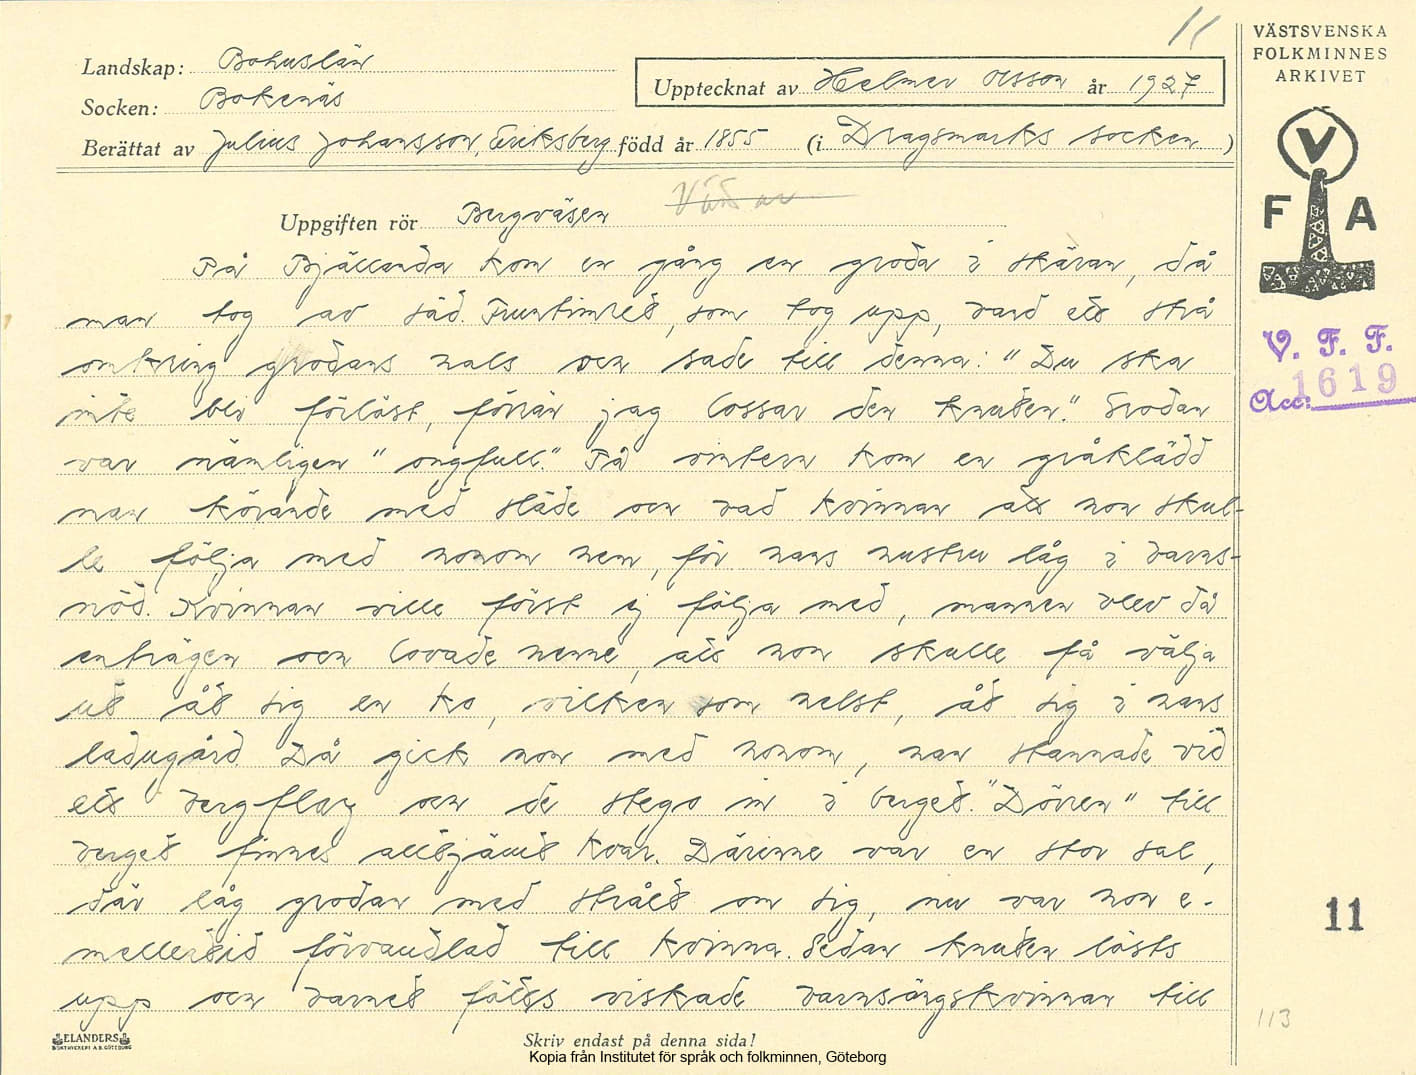 11
VÄSTSVENSKA
FOLKMINNES
ARKIVET
Landskap: Bohuslän
Upptecknat av Helmer Olsson år 1927
Socken: Bokenäs
Berättat av Julius Johansson, Eriksberg född år 1855 (i Dragsmarks socken)
V
F A
Uppgiften rör Bergväsen
På Bjällanda kom en gång en groda i skäran, då
man tog av säd. Fruntimret, som tog upp, band ett strå
omkring grodans hals och sade till denna: "Du ska
inte bli förlöst, förrän jag lossar den knuten." Grodan
var nämligen "ongfull". På vintern kom en gråklädd
man körande med släde och bad kvinnan att hon skul-
le följa med honom hem, för hans hustru låg i barns-
nöd. Kvinnan ville först ej följa med, mannen blev då
enträgen och lovade henne, att hon skulle få välja
ut åt sig en ko, vilken som helst, åt sig i hans
ladugård. Då gick hon med honom, han stannade vid
ett berg flag och de stego in i berget. "Dörren" till
berget finnes alltjämt kvar. Därinne var en stor sal,
där låg grodan med strået om sig, nu var hon e-
mellertid förvandlad till kvinna. Sedan knuten lösts
upp och barnet fötts viskade barnsängskvinnan till
V. F. F.
Acc: 1619
11
113
ELANDERS
BOKTRYCKERI A.B. GÖTEBORG
Skriv endast på denna sida!
Kopia från Institutet för språk och folkminnen, Göteborg